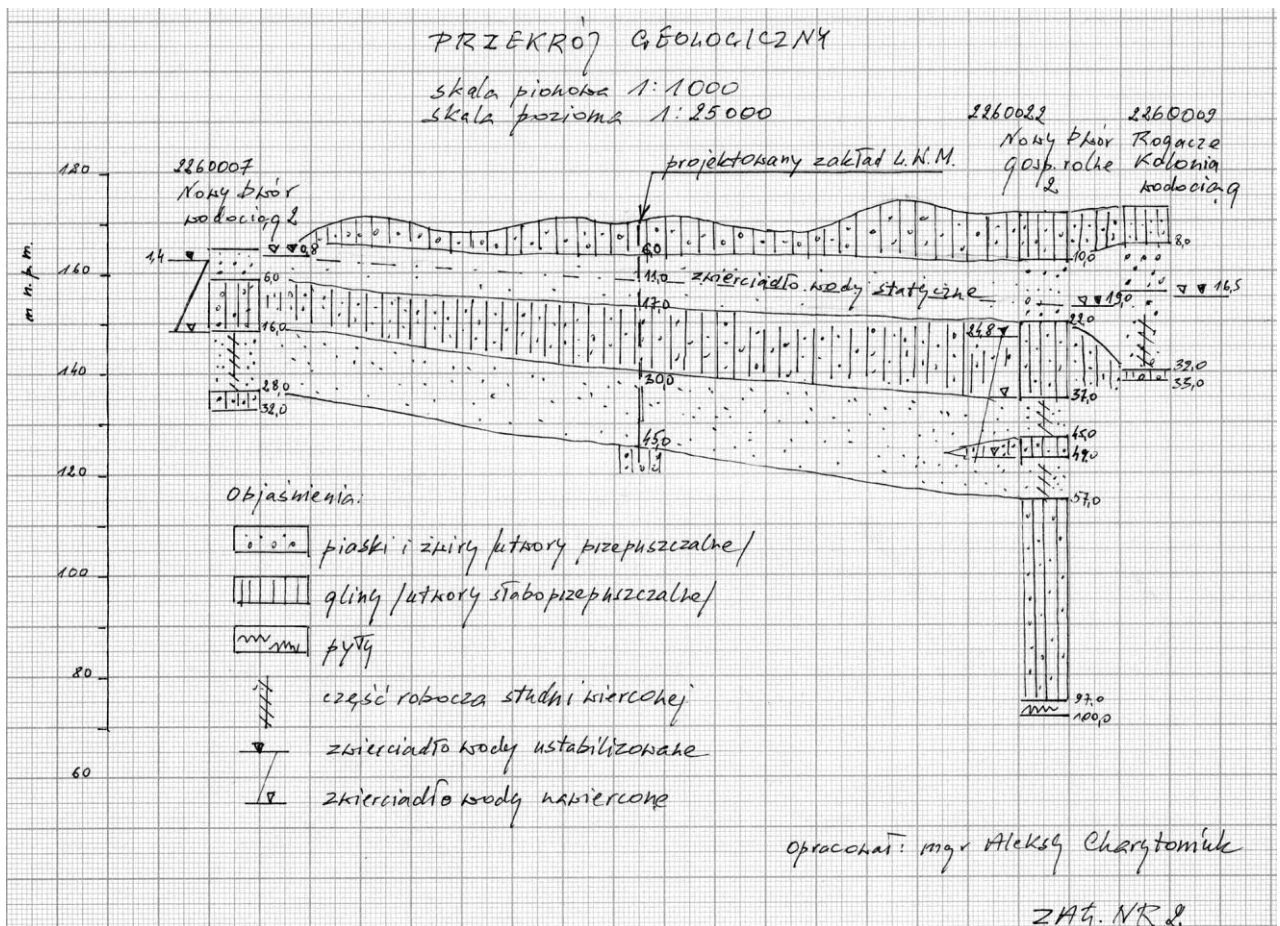 PRZEKRÓJ GEOLOGICZNY
skala pionowa 1:1000
skala pozioma 1:25000
2260007
Nowy Dwór
wodociąg 2
projektowany zakład L.W.M.
2260022
Nowy Dwór
gosp. rolne
2
2260009
Rogacze
Kolonia
wodociąg
m n.p.m.
180
160
140
120
100
80
60
1,4
6,0
16,0
28,0
32,0
0,8
6,0
11,0
17,0
30,0
45,0
zwierciadło wody statyczne
10,0
19,0
22,0
24,8
37,0
45,0
49,0
57,0
97,0
100,0
8,0
16,5
32,0
33,0
Objaśnienia:
piaski i żwiry /utwory przepuszczalne/
gliny /utwory słaboprzepuszczalne/
pyły
część robocza studni wierconej
zwierciadło wody ustabilizowane
zwierciadło wody nawiercone
opracował: mgr Aleksy Charytoniuk
ZAŁ. NR 2